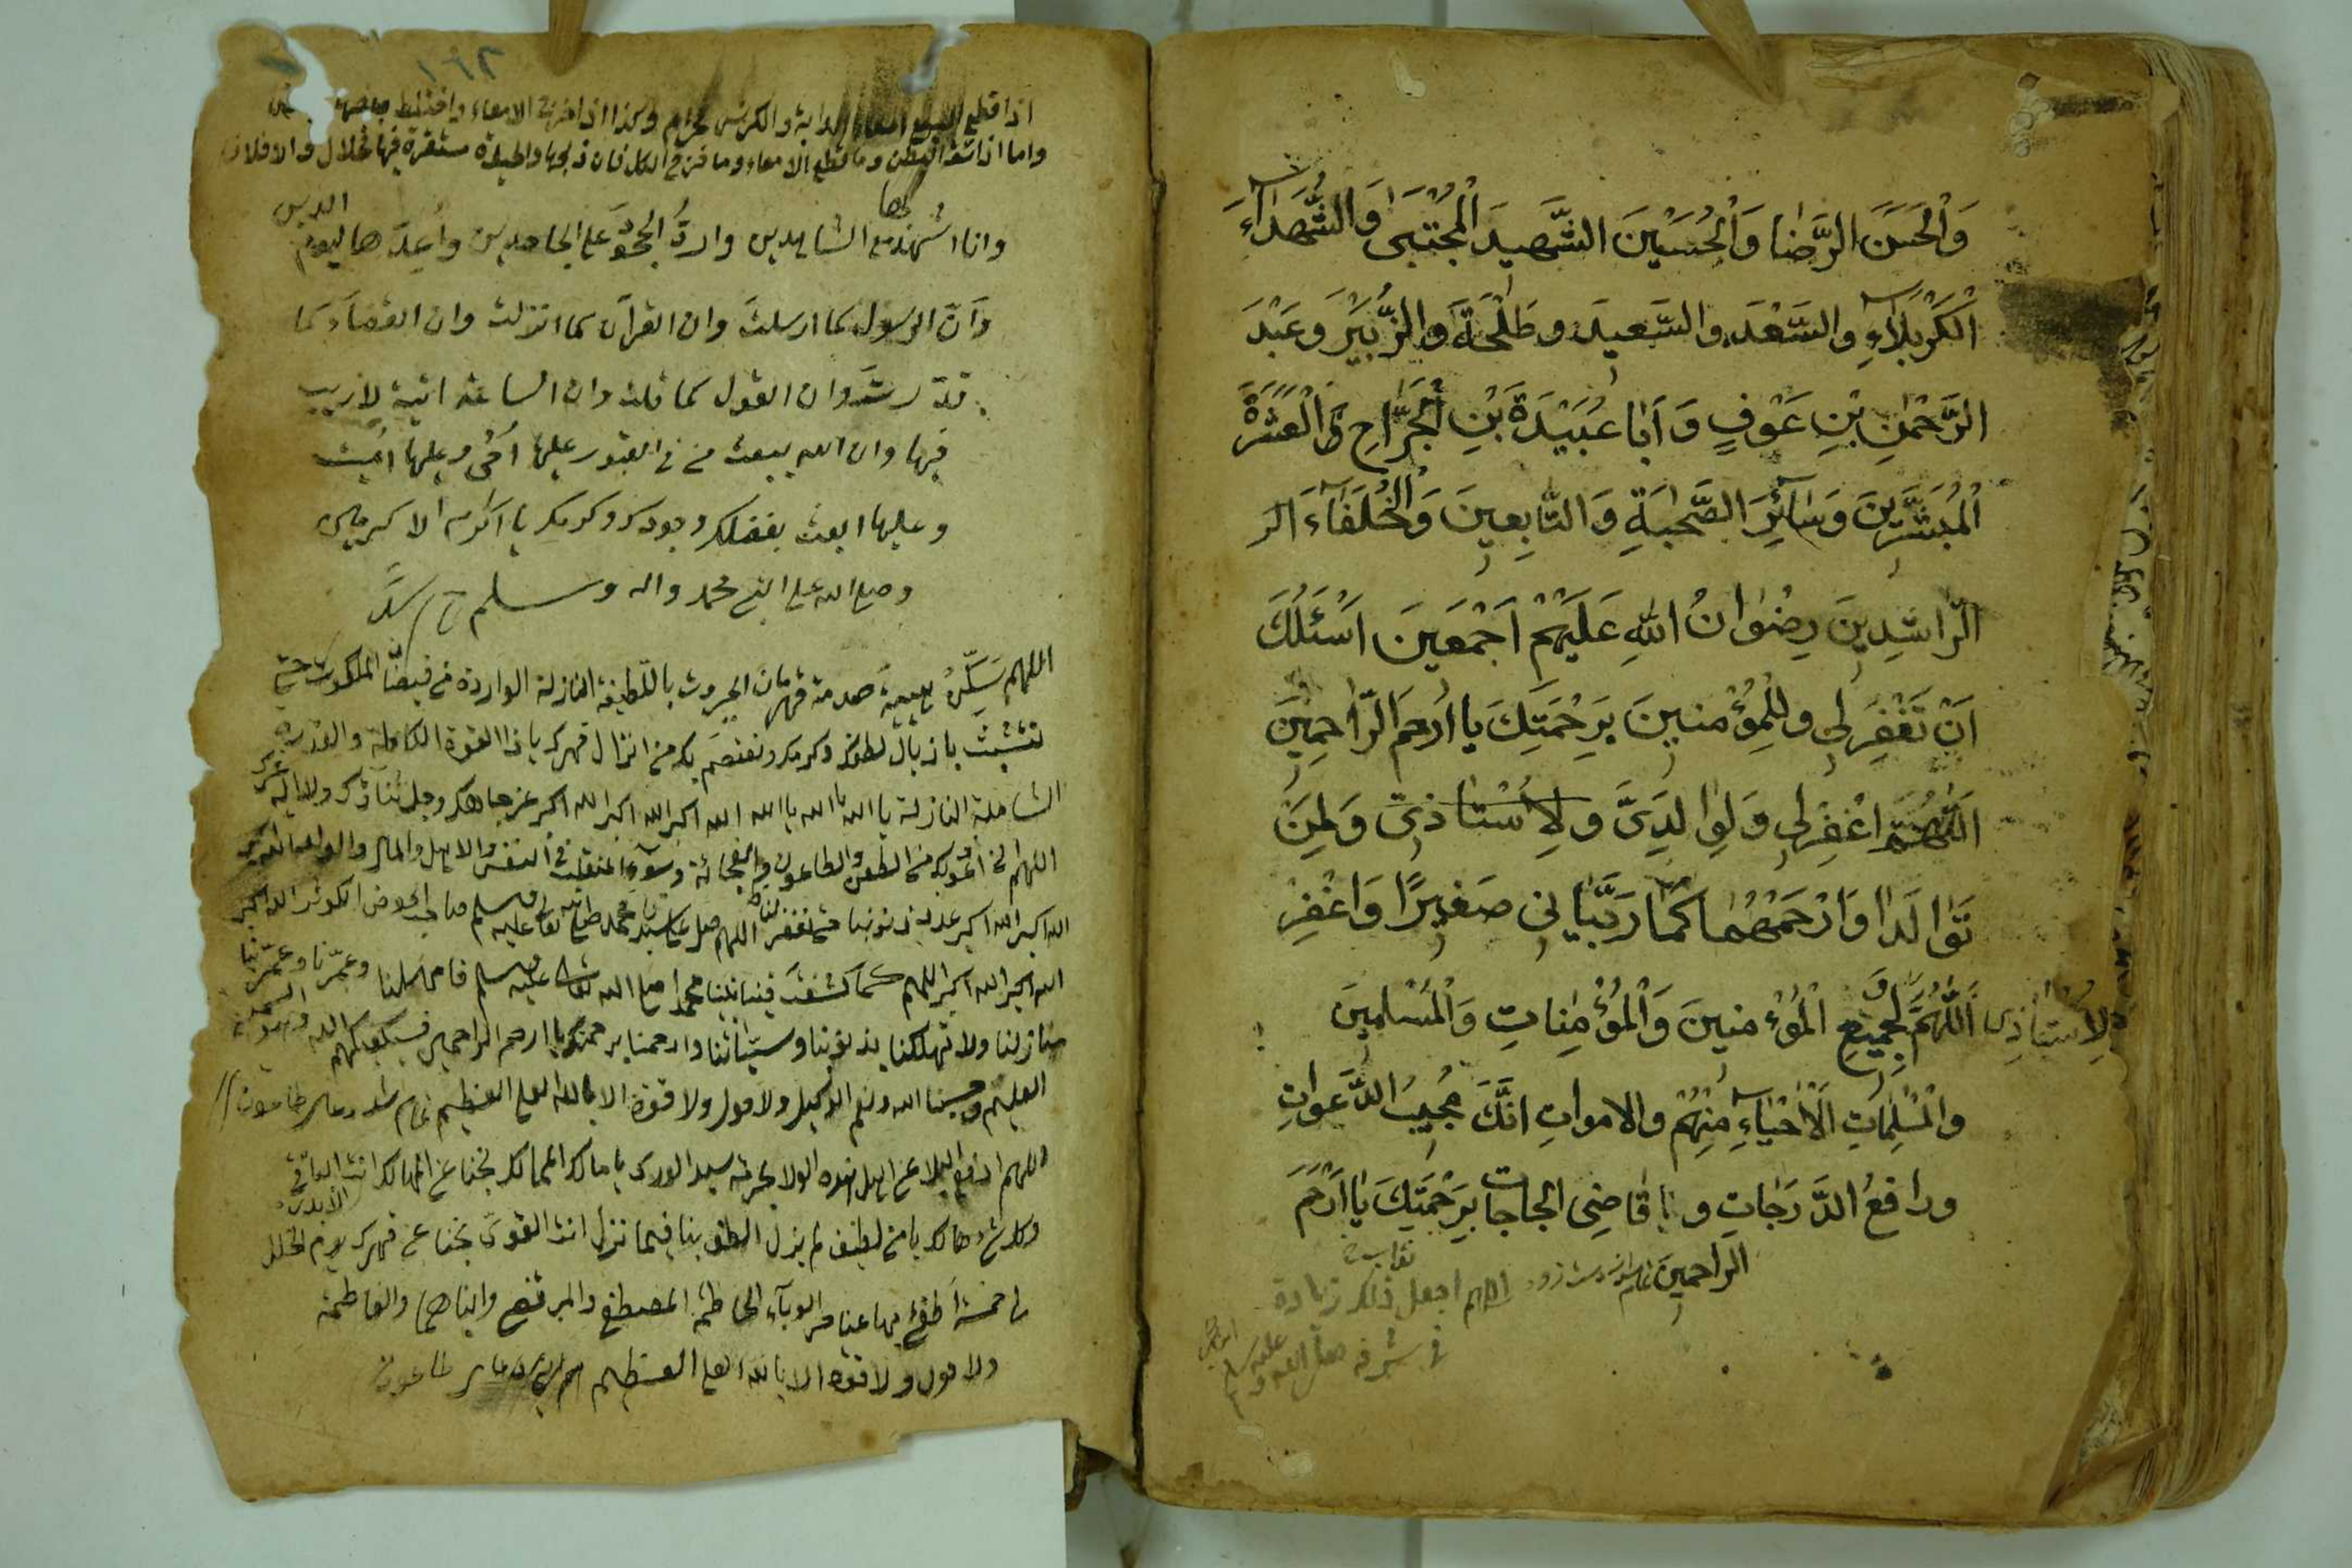 وَالْحَسَنَ الرَّضٰا وَالْحُسَيْنَ الشَّهِيدَ الْمُجْتَبٰى وَالشُّهَدَاۤءَ
الْكَرْبَلَاۤءِ وَالسَّعْدَ وَالسَّعِيدَ وطَلْحَةَ وَالزُّبَيْرَ وَعَبْدَ
الرَّحْمٰنِ بْنِ عَوْفٍ وَ اَبٰا عُبَيْدَةَ بْنِ الْجَرَّاحِ وَ الْعَشَرَةَ
الْمُبَشَّرِينَ وَسَاۤئِرَ الصَّحٰبَةِ وَ التَّابِعِينَ وَالْخُلَفَاۤءَ الر
الرّٰاشِدِينَ رِضْوٰانُ اللهِ عَلَيْهِمْ اَجْمَعِينَ اَسْئَلُكَ
اَنْ تَغْفِرَ لِى وللْمُؤْمنينَ بِرَحْمَتِكَ يا اَرْحمَ الرّٰاحِمِينَ
اَللّٰهُمَّ اغْفِرْلِى وَلِوٰالِدَىَّ و لِاُسْتٰاذِى وَلِمَنْ
تَوٰالَدٰا وَارْحَمْهُمٰا كَمٰا رَبَّيٰانِى صَغِيرًا وَاغْفِرْ
لِاُسْتٰاذِى اَللّٰهُمَّ لِجَمِيعِ الْمُؤْمنينَ وَالْمُؤْمِنٰاتِ وَالْمُسْلِمِينَ
والْمُسْلِمٰاتِ الْاَحْيَاۤءِ مِنْهُمْ والاموٰاتِ انَّكَ مُجِيبُ الدَّعَوٰاتِ
ورافِعُ الدَّرَجٰاتِ و يا قٰاضِىَ الحاجات بِرَحْمَتِكَ يٰا اَرْحَمَ
الراحمين
اللهم اجعل ذلك زيادة
فى شرفه صلى الله عليه وسلم
واما اذا شق البطن وما قطع الامعاء وما
وانا اشهد مع الشاهدين وارد الجحود على الجاحدين واعدها ليوم الدين
وَاَنّ الرسول كما ارسلتَ وان القرآن كما انزلت وان القضاءَ كما
قدّرت وان القول كما قلت وان الساعة اتية لاريب
فيها وان الله يبعث من فى القبور عليها اَحْىٰ وعليها اَميت
وعليها ابعث بفضلك وجودك وكرمك يا اكرم الاكرمين
وصلى الله على النبى محمد واله وسلم
اللهم سَكِّنْ هيبةَ صدمة قهرمان الجبروت باللّطيفة النازلة الواردة من فيضان الملكوت حتى
نتشبث باذيال لطفك وكرمك ونعتصم بك من انزال قهرك يا ذا القوة الكاملة والقدرة
الشاملة النازلة يا الله يا الله يا الله الله اكبر الله اكبر الله اكبر عز جاهك وجل ثناؤك ولا اله غيرك
اللهم انى اعوذ بك من الطعن والطاعون والفجائة وسوء المنقلب فى النفس والاهل والمال والولد
الله اكبر الله اكبر عدد ذنوبنا حتى تغفر لنا اللهم صل على سيدنا محمد صلى الله تعالى عليه وسلم صاحب الحوض الكوثر الله اكبر
الله اكبر الله اكبر اللهم كما شفعت فينا نبينا محمدا صلى الله تعالى عليه وسلم فامهلنا وعمّرنا وعمّر بنا
منازلنا ولا تهلكنا بذنوبنا وسيّئاتنا وارحمنا برحمتك يا ارحم الراحمين فسيكفيكهم الله وهو السميع
العليم وحسبنا الله ونعم الوكيل ولا حول ولا قوة الا بالله العلى العظيم
اللهم ادفع البلا عن اهل هذه الولا بحرمة سيد الورى يا مالك الممالك نجنا عن المهالك انت الباقى
وكل شئ هالك يا من لطيف لم يزل الطف بنا فيما نزل انت القوى نجنا عن قهرك يوم الخلل
لى خمسة اطفئ بها عنا حر الوبآء الحاطمة المصطفى والمرتضى وابناهما والفاطمة
ولا حول ولا قوة الا بالله العلى العظيم